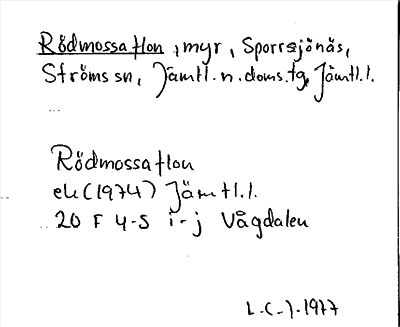 Rödmossaflon, myr, Sporrsjönäs,
Ströms sn, Jämtl. n. doms. tg, Jämtl. l.
Rödmossaflon
ek (1974) Jämtl. l.
20 F 4-5 i-j Vågdalen
L-C-J-1977